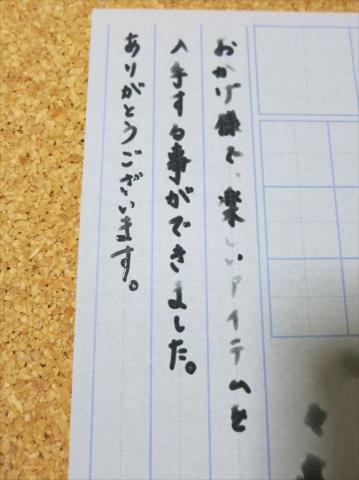 おかげ様で、楽しいアイテムを
入手する事ができました。
ありがとうございます。